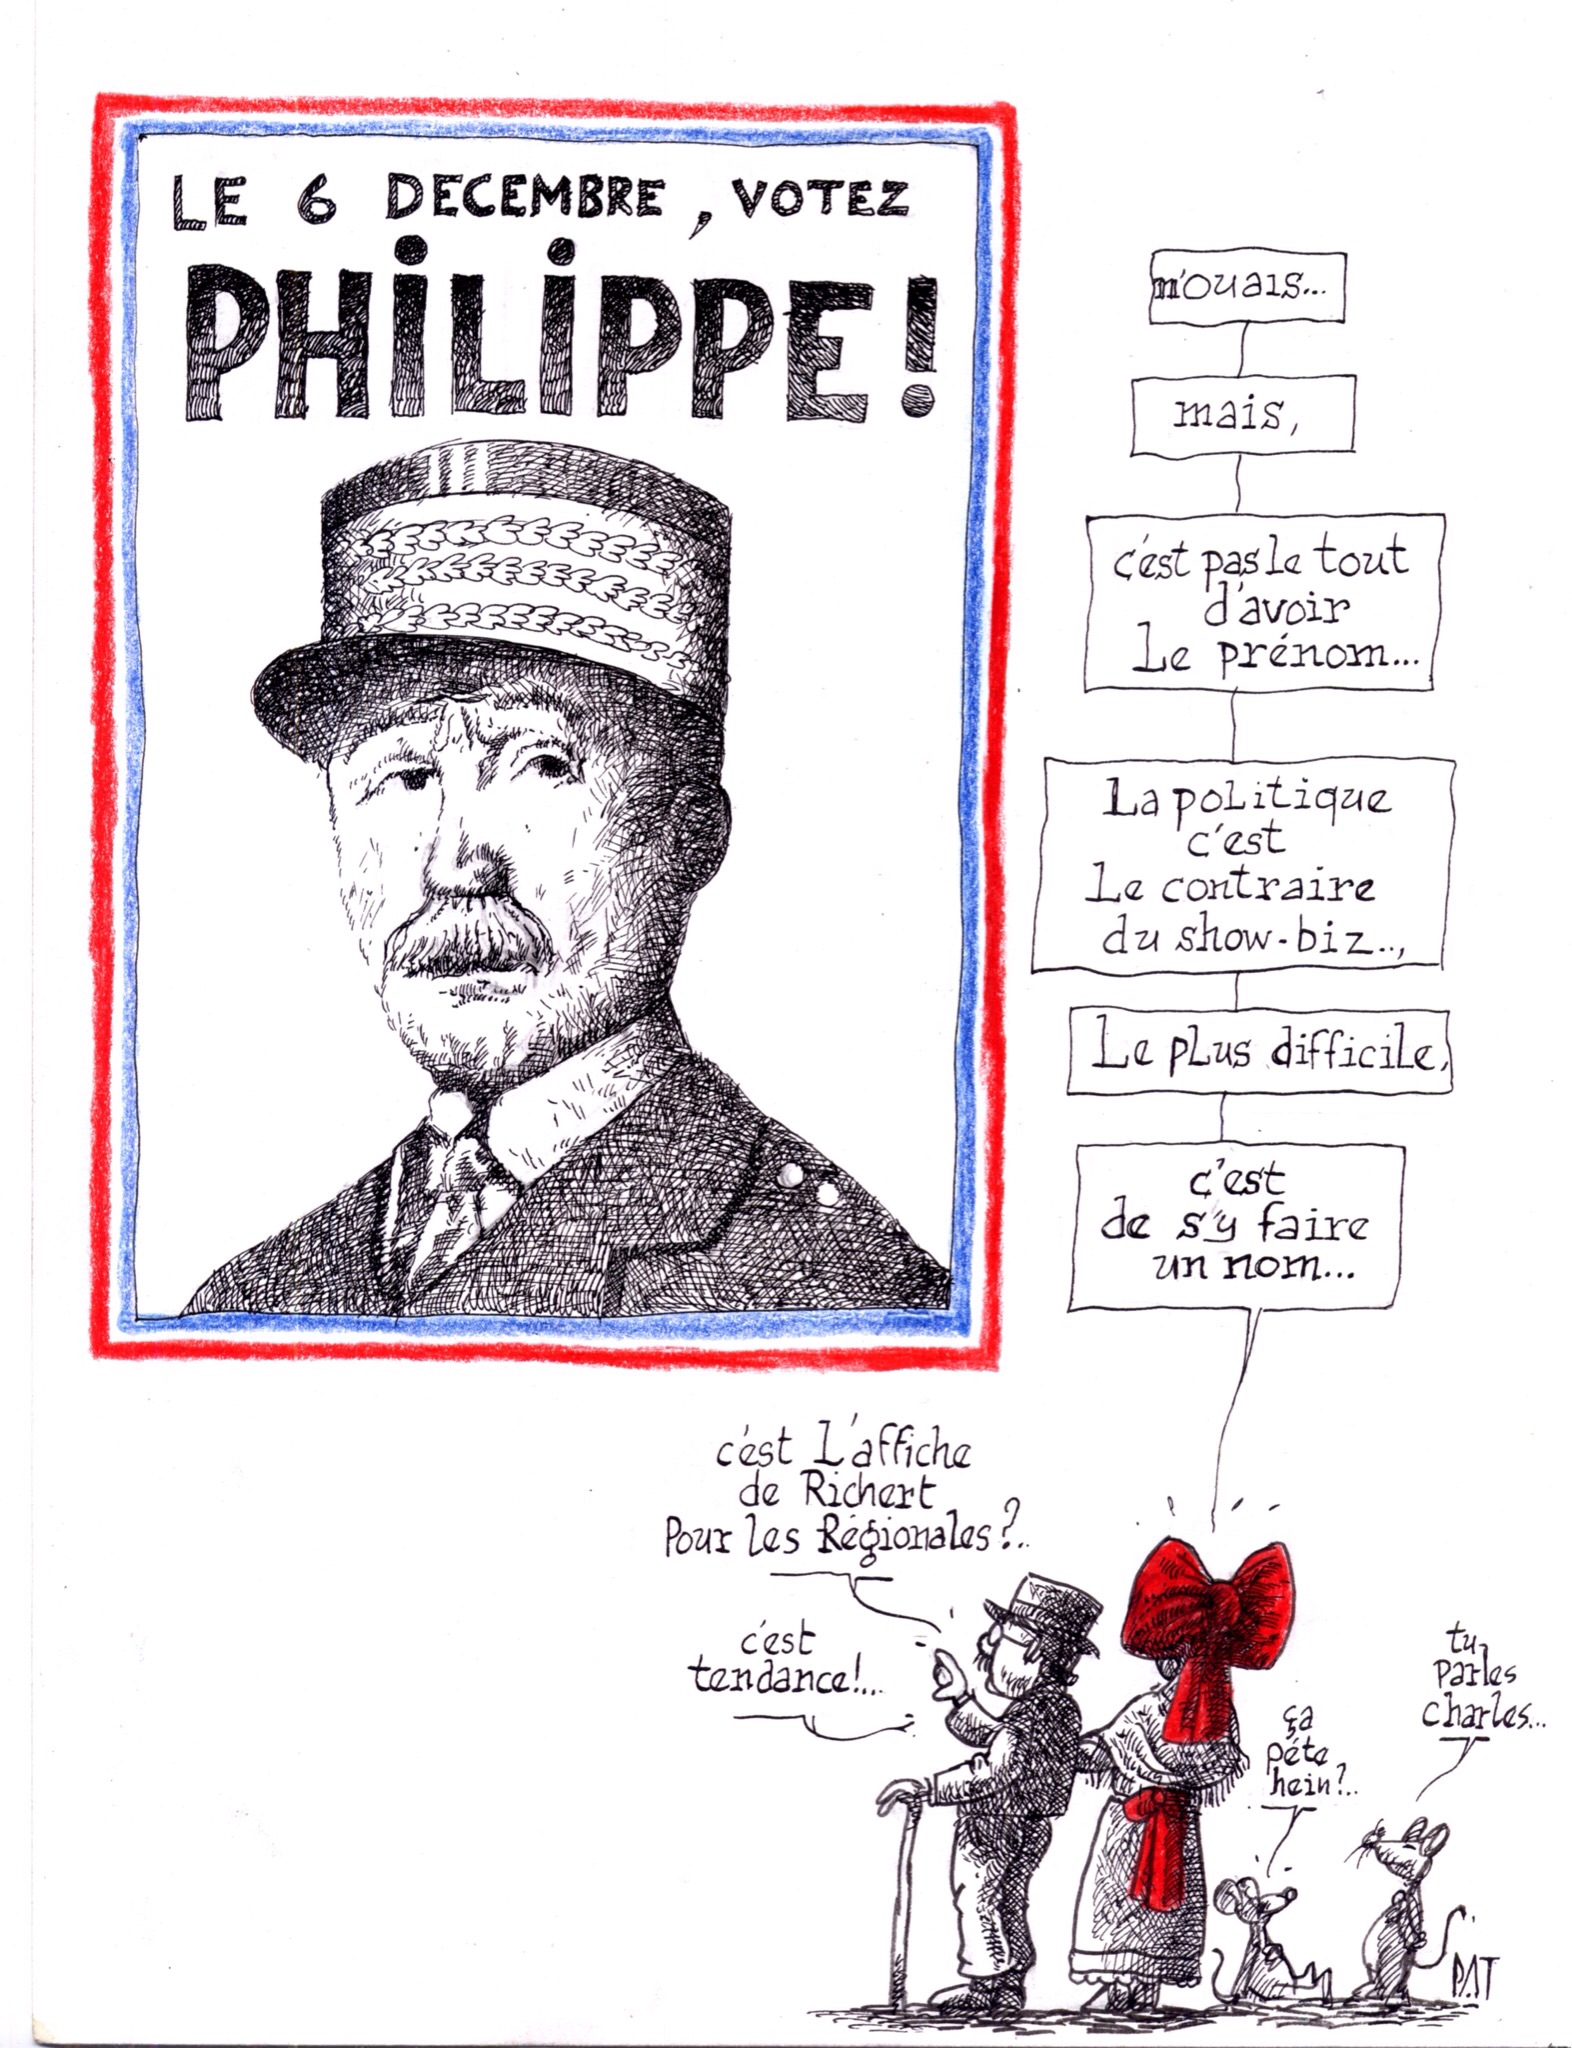 LE 6 DECEMBRE, VOTEZ
PHiLiPPE!
m'ouais...
mais,
c'est pas le tout
d'avoir
Le prénom...
La politique
c'est
Le contraire
du show-biz...,
Le plus difficile,
c'est
de s'y faire
un nom...
c'est L'affiche
de Richert
Pour les Régionales?..
c'est
tendance!...
ça
péte
hein?..
tu
parles
charles...
PAT